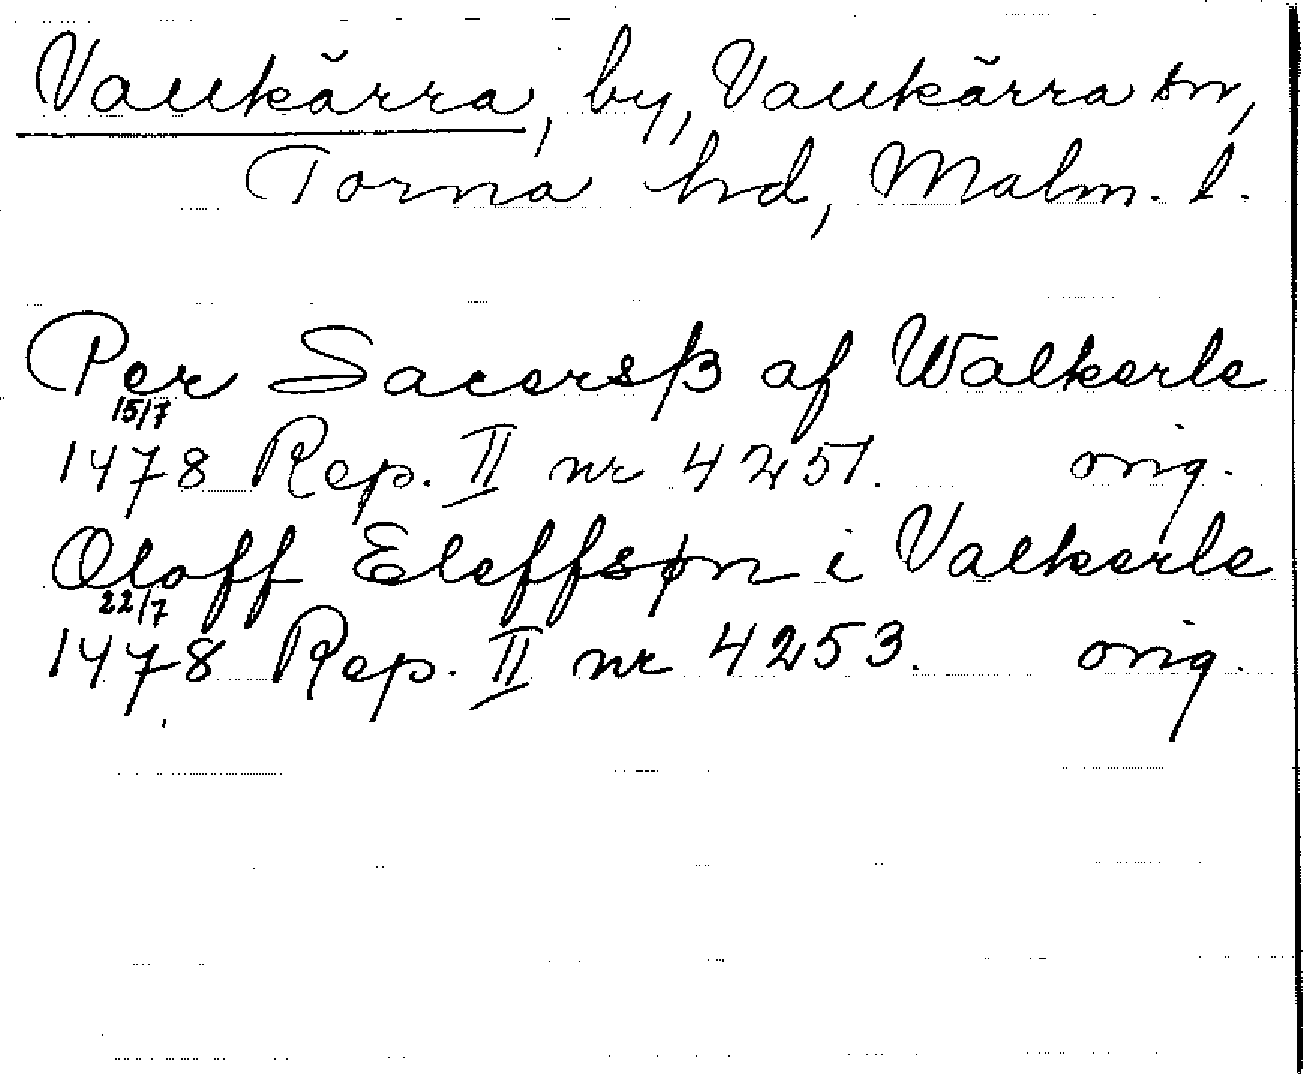 Vallkärra, by, Vallkärra sn,
Torna hd, Malm. l.
Per Sacersß af Walkerle
15/7
1478 Rep. II nr 4251. orig.
Oloff Eleffsøn i Valkerle
22/7
1478 Rep. II nr 4253. orig.